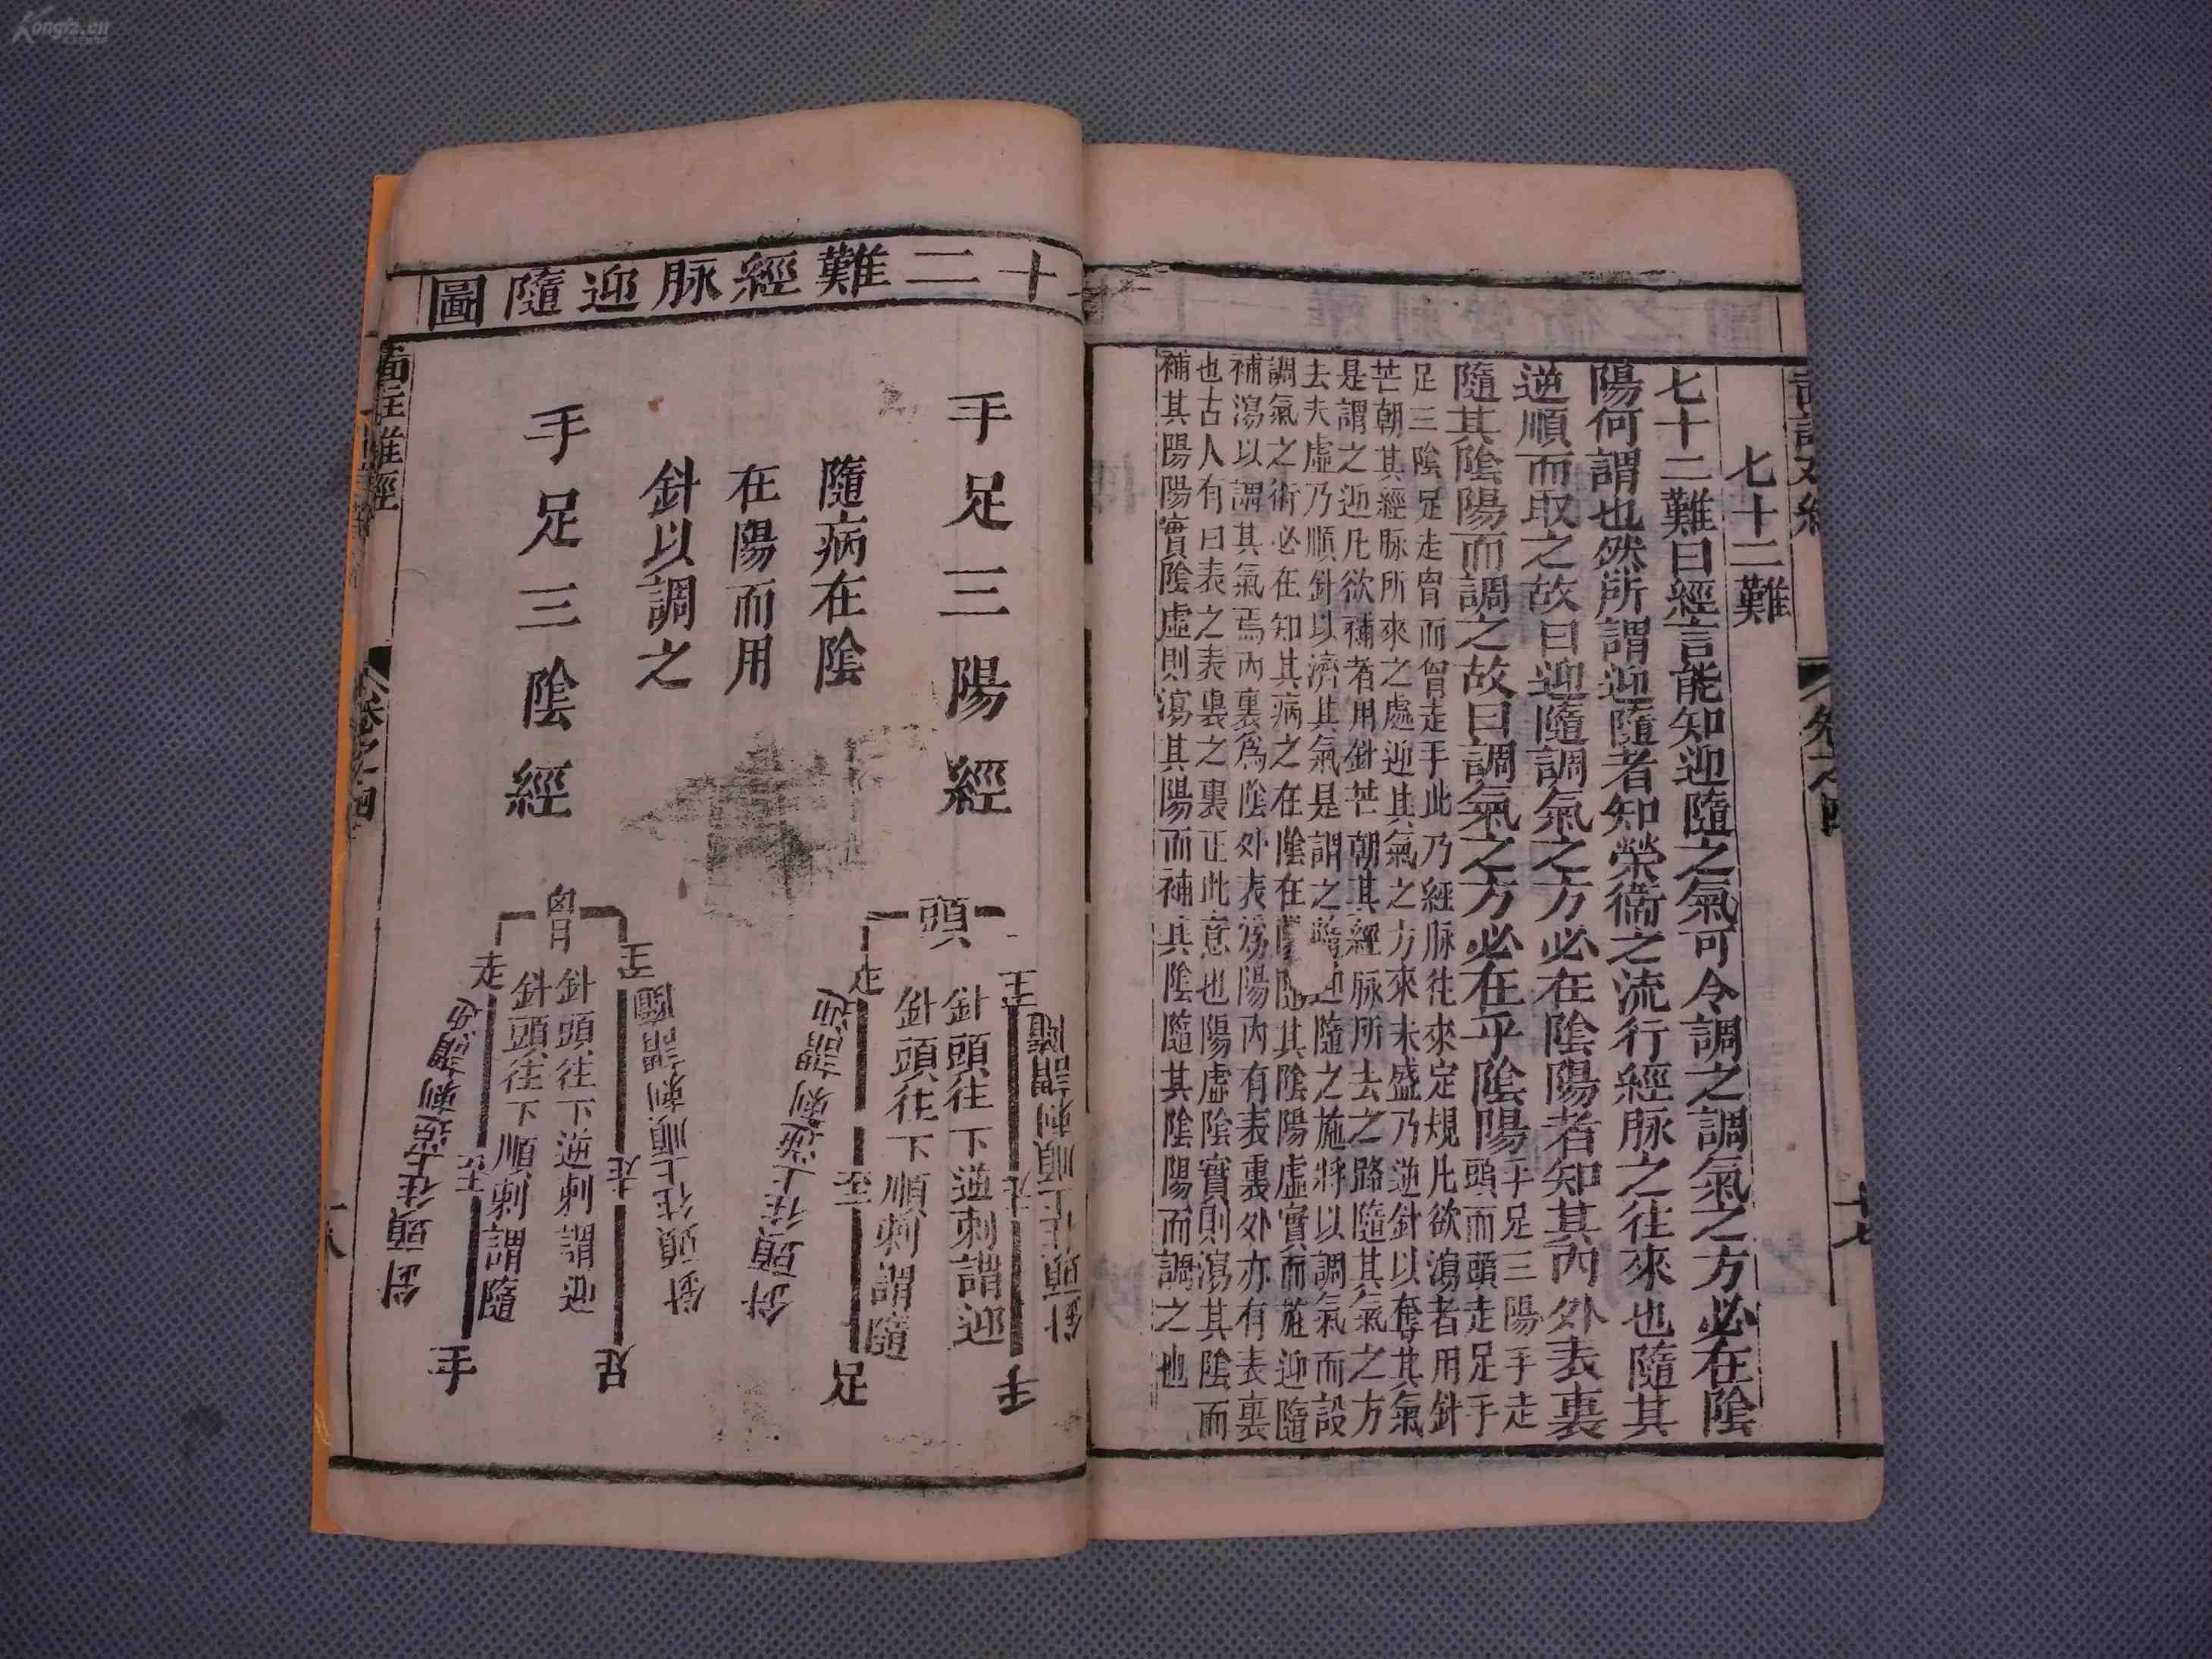 Kongfz.cn
七十二難
七十二難曰經言能知迎隨之氣可令調之調氣之方必在陰
陽何謂也然所謂迎隨者知榮衞之流行經脉之往來也隨其
逆順而取之故曰迎隨調氣之方必在陰陽者知其內外表裏
隨其陰陽而調之故曰調氣之方必在乎陰陽
手足三陽手走
頭而頭走足手
足三陰足走胷而胷走手此乃經脉往來定規凡欲瀉者用針
芒朝其經脉所來之處迎其氣之方來未盛乃逆針以奪其氣
是謂之迎凡欲補者用針芒朝其經脉所去之路隨其氣之方
去夫虛乃順針以濟其氣是謂之隨迎隨之施將以調氣而設
調氣之術必在知其病之在陰在陽隨其陰陽虛實而施迎隨
補瀉以調其氣焉內裏為陰外表為陽內有表裏外亦有表裏
也古人有曰表之表裏之裏正此意也陽虛陰實則瀉其陰而
補其陽陽實陰虛則瀉其陽而補其陰隨其陰陽而調之也
十七
十二難經脉迎隨圖
手足三陽經
隨病在陰
在陽而用
針以調之
手足三陰經
頭
至
走
針頭往上順刺謂隨
針頭往下逆刺謂迎
走
手
針頭往下順刺謂隨
走
至
足
針頭往上逆刺謂迎
胷
至
走
針頭往上順刺謂隨
針頭往下逆刺謂迎
走
足
針頭往下順刺謂隨
至
手
針頭往上逆刺謂迎
圖註難經
卷之四
十八